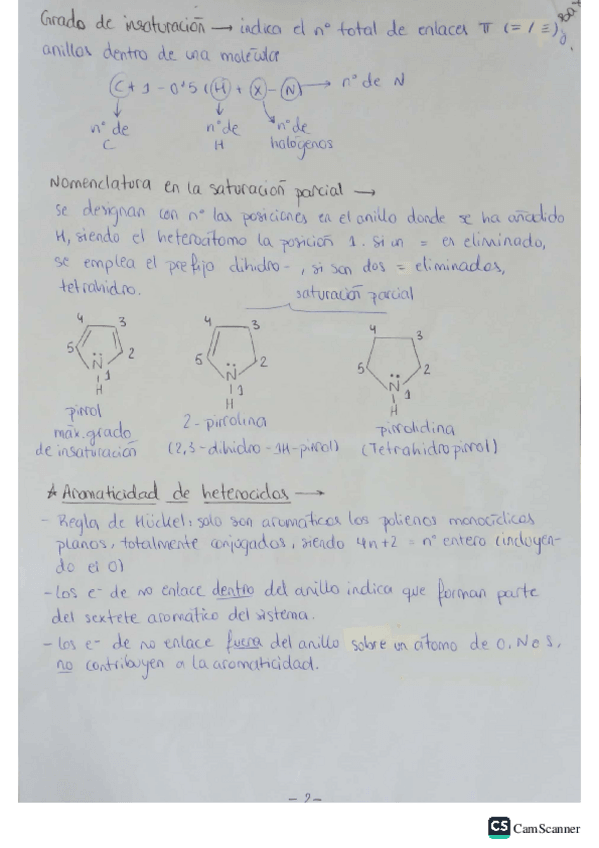 Grado de insaturación → indica el nº total de enlaces π (= / ≡) y
anillos dentro de una molécula
C + 1 - 0'5 (H + X - N) → nº de N
nº de C
nº de H
nº de halógenos
Nomenclatura en la saturación parcial →
se designan con nº las posiciones en el anillo donde se ha añadido
H, siendo el heteroátomo la posición 1. Si un = es eliminado,
se emplea el prefijo dihidro-, si son dos = eliminados,
tetrahidro.
saturación parcial
4 3
5 2
N 1
H
4 3
5 2
N 1
H
4 3
5 2
N 1
H
pirrol
máx. grado
de insaturación
2-pirrolina
(2,3-dihidro-1H-pirrol)
pirrolidina
(Tetrahidropirrol)
* Aromaticidad de heterociclos →
- Regla de Hückel: solo son aromáticos los polienos monocíclicos
planos, totalmente conjugados, siendo 4n+2 = nº entero (incluyen-
do el 0)
- Los e⁻ de no enlace dentro del anillo indica que forman parte
del sextete aromático del sistema.
- Los e⁻ de no enlace fuera del anillo sobre un átomo de O, N o S,
no contribuyen a la aromaticidad.
- 2 -
CS CamScanner